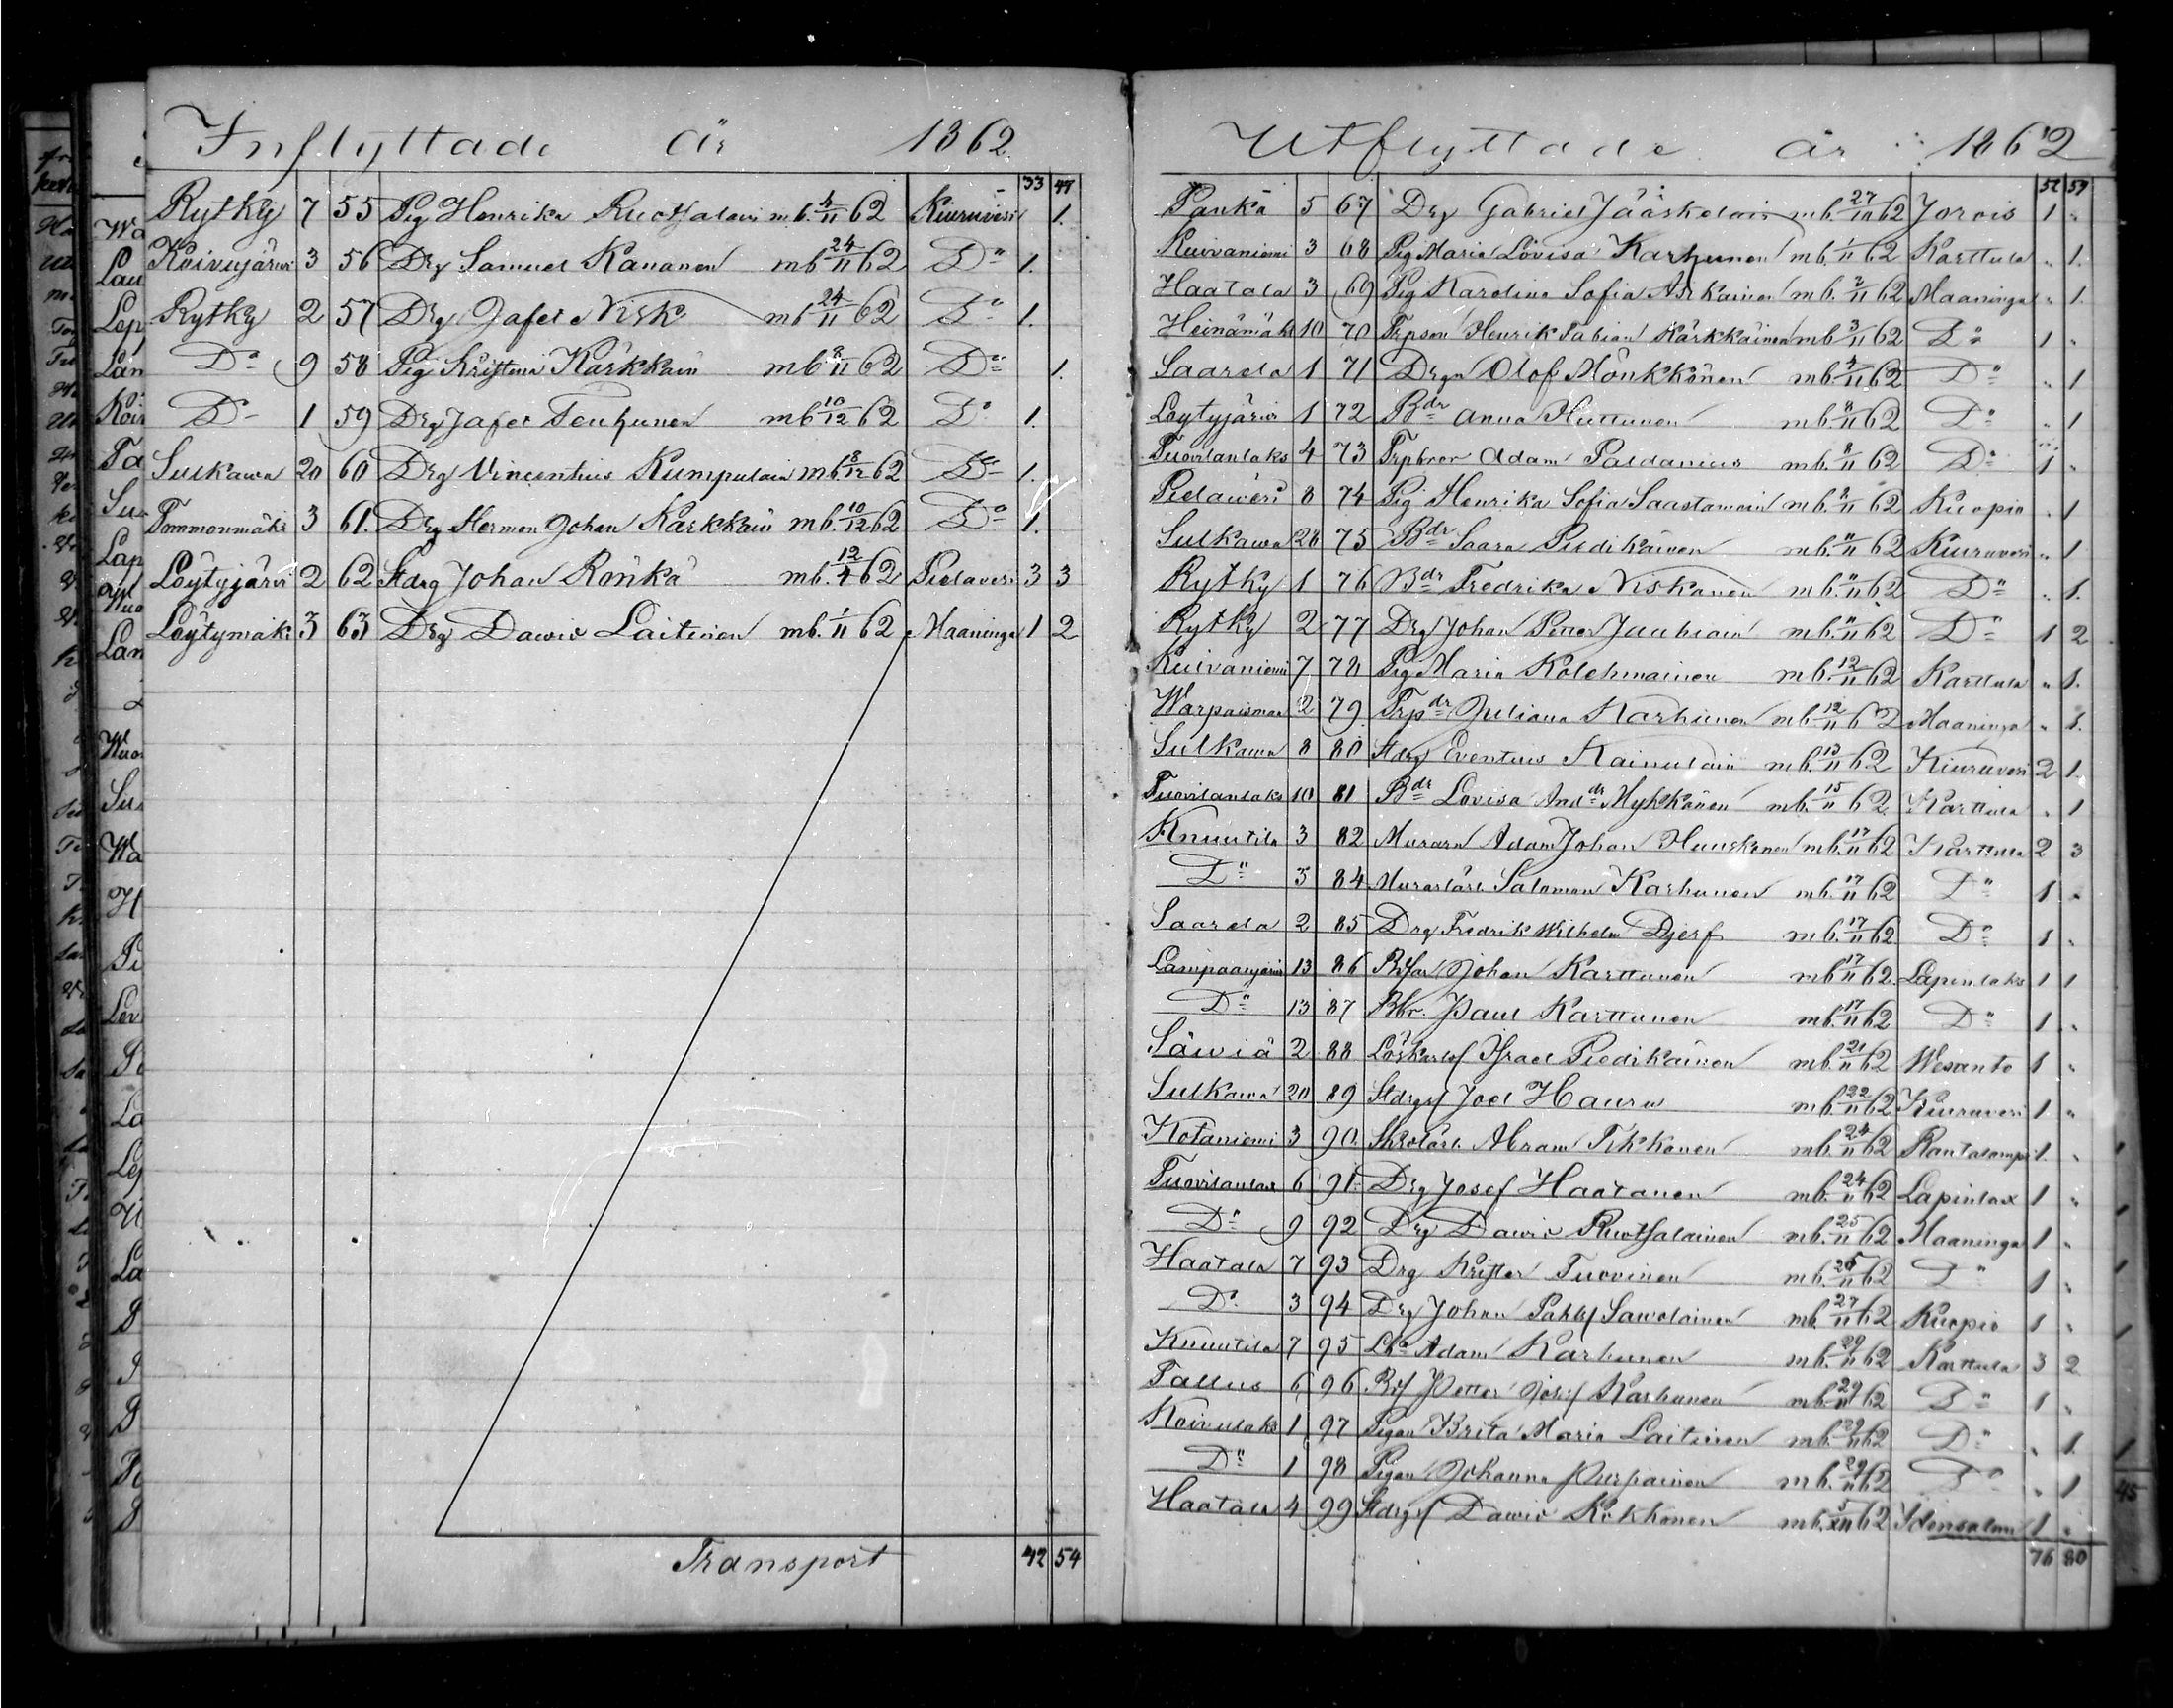 Inflyttade år 1862
33 47
Rytky 7 55 Pig Henrika Ruotsalain mb. 4/11 62 Kiuruvesi 1.
Koivujärvi 3 56 Drg Samuel Kananen mb 24/11 62 D:o 1.
Rytky 2 57 Drg Jafet Nisk mb 24/11 62 D:o 1.
D:o 9 58 Pig Kristina Kärkkäin mb 2/11 62 D:o 1.
D:o 1 59 Drg Jafet Tenhunen mb 10/12 62 D:o 1.
Sulkawa 20 60 Drg Vincentius Kumpulain mb 8/12 62 D:o 1.
Pommonmäki 3 61. Drg Herman Johan Karkkäin mb. 10/12 62 D:o 1.
Löytyjärvi 2 62 Stdrg Johan Rönkä mb. 12/4 62 Pielavesi 3 3
Löytymäki 3 63 Drg Dawid Laitinen mb. 1/11 62 Maaninga 1 2
Transport 42 54
Utflyttade år 1862
52 59
Panka 5 67 Drg Gabriel Jääskelain mb. 27/10 62 Jorois 1 "
Kuivaniemi 3 68 Pig Maria Lovisa Karhunen mb. 1/11 62 Karttula " 1.
Haatala 3 69 Pig Karolina Sofia Asikainen mb. 2/11 62 Maaninga " 1.
Heinämäki 10 70 Trpson Henrik Fabian Kärkkäinen mb 3/11 62 D:o 1 "
Saarela 1 71 Drgn Olof Mönkkönen mb. 4/11 62 D:o " 1
Löytyjärvi 1 72 Bdr Anna Huttunen mb. 8/11 62 D:o " 1
Tuovilanlaks 4 73 Trpbror Adam Paldanius mb. 8/11 62 D:o 1 "
Pielawesi 8 74 Pig Henrika Sofia Saastamoin mb. 8/11 62 Kuopio " 1
Sulkawa 28 75 Bdr Saara Piedikäinen mb. 11/11 62 Kiuruvesi " 1
Rytky 1 76 Bdr Fredrika Niskanen mb. 11/11 62 D:o " 1.
Rytky 2 77 Drg Johan Petter mb. 11/11 62 D:o 1 2
Kuivaniemi 7 78 Pig Maria Kolehmainen mb. 12/11 62 Karttula " 1.
Warpaisman 2 79 Trpdr Juliana Karhunen mb. 12/11 62 Maaninga " 1.
Sulkawa 8 80 Stdrg Eventius Kainulain mb. 13/11 62 Kiuruvesi 2 1.
Tuovilanlaks 10 81 Bdr Lovisa Anddr Mykkänen mb. 15/11 62 Karttula " 1
Knuutila 3 82 Murarn Adam Johan Huuskonen mb. 17/11 62 Karttula 2 3
D:o 3 84 Murarlärl Salomon Karhunen mb. 17/11 62 D:o 1 "
Saarela 2 85 Drg Fredrik Wilhelm Djerf mb. 17/11 62 D:o 1 "
Lampaanjärvi 13 86 Johan Karttunen mb 17/11 62 Lapinlaks 1 1
D:o 13 87 Bbr. Paul Karttunen mb. 17/11 62 D:o 1 "
Säwiä 2 88 Israel Piedikäinen mb. 21/11 62 Wesanto 1 "
Sulkawa 20 89 Stdrgsf Joel Hauru mb. 22/11 62 Kiuruvesi 1 "
Kotaniemi 3 90. Abram Tikkanen mb. 24/11 62 Rantasalmpi 1. "
Tuovilanlax 6 91. Drg Josef Haatanen mb. 24/11 62 Lapinlax 1 "
D:o 9 92 Drg Dawid Ruotsalainen mb. 25/11 62 Maaninga 1 "
Haatala 7 93 Drg Krister Tuovinen mb. 25/11 62 D:o 1 "
D:o 3 94 Drg Johan Sawolainen mb. 27/11 62 Kuopio 1 "
Knuutila 7 95 Adam Karhunen mb. 29/11 62 Karttula 3 2
Tallus 6 96 Petter Josef Karhunen mb. 29/11 62 D:o 1 "
Koivulaks 1 97 Pigan Brita Maria Laitinen mb. 29/11 62 D:o " 1.
D:o 1 98 Pigan Johanna Purpainen mb. 29/11 62 D:o " 1
Haatala 4 99 Stdrgsf Dawid Kokkonen mb. 5/XII 62 Idensalmi 1 "
76 80